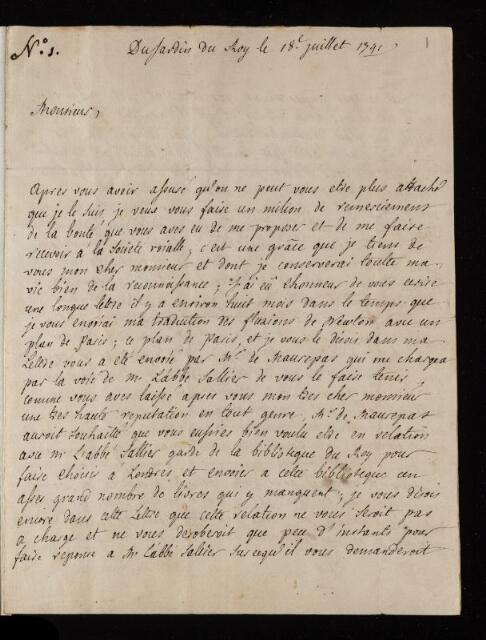 N.o 1.
Du Jardin du Roy le 18.e juillet 1741,
1
Monsieur,
Apres vous avoir assuré qu'on ne peut vous etre plus attaché
que je le suis, je veus vous faire un milion de remerciemens
de la bonté que vous aves eu de me proposer et de me faire
recevoir à la Societé roialle, c'est une grâce que je tiens de
vous mon cher monsieur et dont je conserverai toutte ma
vie bien de la reconnoissance; j'ai eû l'honneur de vous ecrire
une longue lettre il y a environ huit mois dans le temps que
je vous envoiai ma traduction des fluxions de Newton avec un
plan de paris; ce plan de paris, et je vous le disois dans ma
Lettre vous a eté envoié par Mr. de Maurepas qui me chargea
par la voie de mr L'abbé Sallier de vous le faire tenir,
comme vous aves laissé apres vous mon tres cher monsieur
une tres haute reputation en tout genre, Mr. de Maurepas
auroit souhaitté que vous eussies bien voulu etre en relation
avec mr L'abbé Sallier garde de la biblioteque du Roy pour
faire choisir à Londres, et envoier a cette biblioteque un
asses grand nombre de livres qui y manquent; je vous disois
encore dans cette Lettre que cette relation ne vous seroit pas
a charge et ne vous deroberoit que peu d'instants pour
faire reponse a Mr L'abbé Sallier sur ce qu'il vous demanderoit